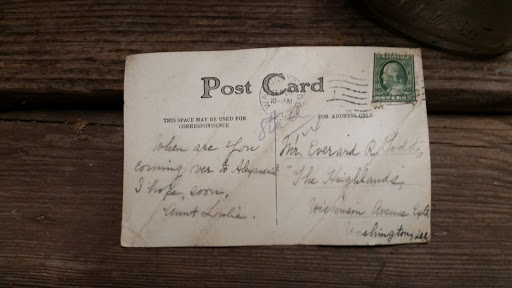 Post Card
THIS SPACE MAY BE USED FOR
CORRESPONDENCE
FOR ADDRESS ONLY
10-AM
When are you
coming over to
I hope, soon,
Aunt
Mr. Everard R. Todd,
"The Highlands,
Wisconsin Avenue
Washington,